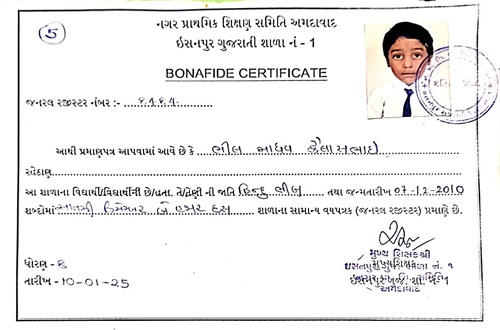 5
નગર પ્રાથમિક શિક્ષણ સમિતિ અમદાવાદ
ઇસનપુર ગુજરાતી શાળા નં - 1
BONAFIDE CERTIFICATE
જનરલ રજીસ્ટર નંબર :-
આથી પ્રમાણપત્ર આપવામાં આવે છે કે ભીલ માધવ કૈલાસભાઇ
રહેઠાણ
આ શાળાના વિદ્યાર્થી/વિદ્યાર્થીની છે/હતા. તે/તેણી ની જાતિ હિન્દુ ભીલ તથા જન્મતારીખ 07-12-2010
શબ્દોમાં સાતમી ડિસેમ્બર બે હજાર દસ શાળાના સામાન્ય વયપત્રક (જનરલ રજીસ્ટર) પ્રમાણે છે.
મુખ્ય શિક્ષકશ્રી
ધોરણ - 8
તારીખ - 10-01-25
અમદાવાદ